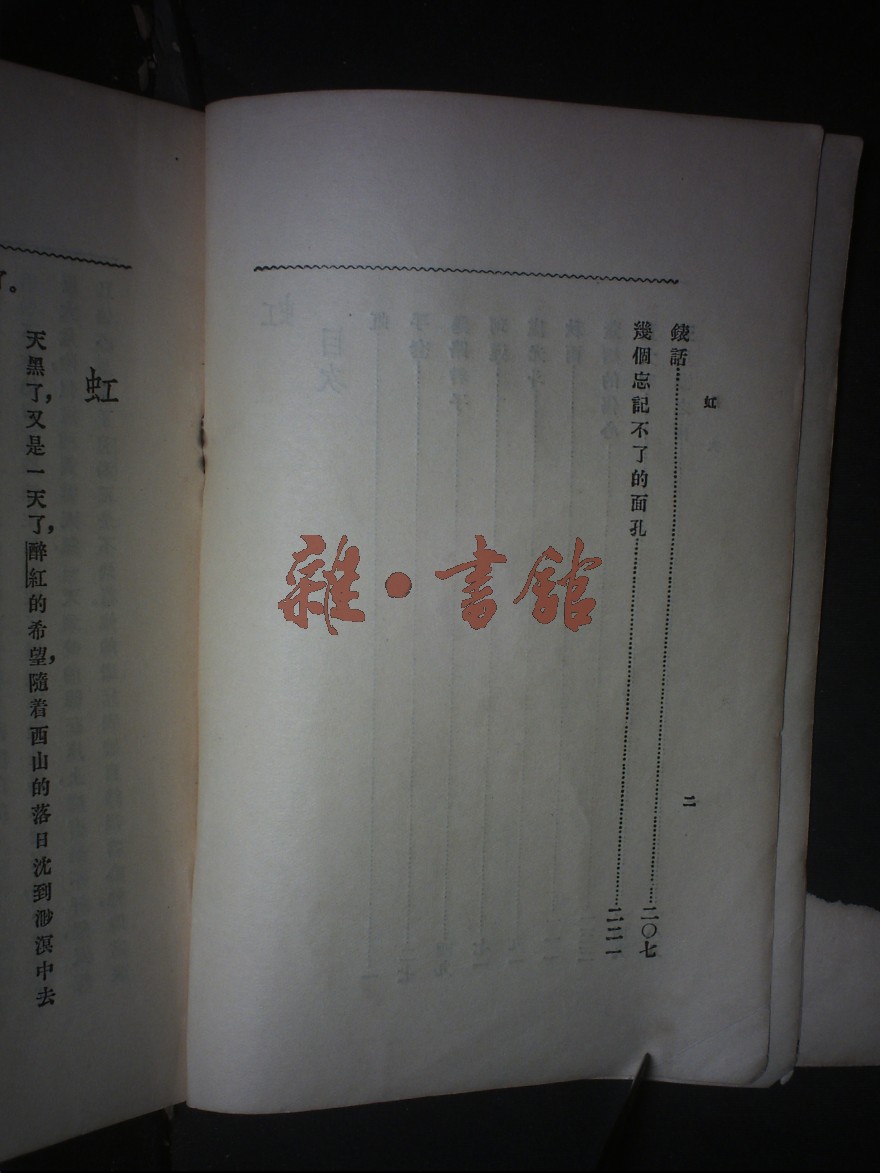 虹
二
錢話……二〇七
幾個忘記不了的面孔……二二一
虹
天黑了,又是一天了,醉紅的希望,隨着西山的落日沈到渺溟中去
了。
雜·書館